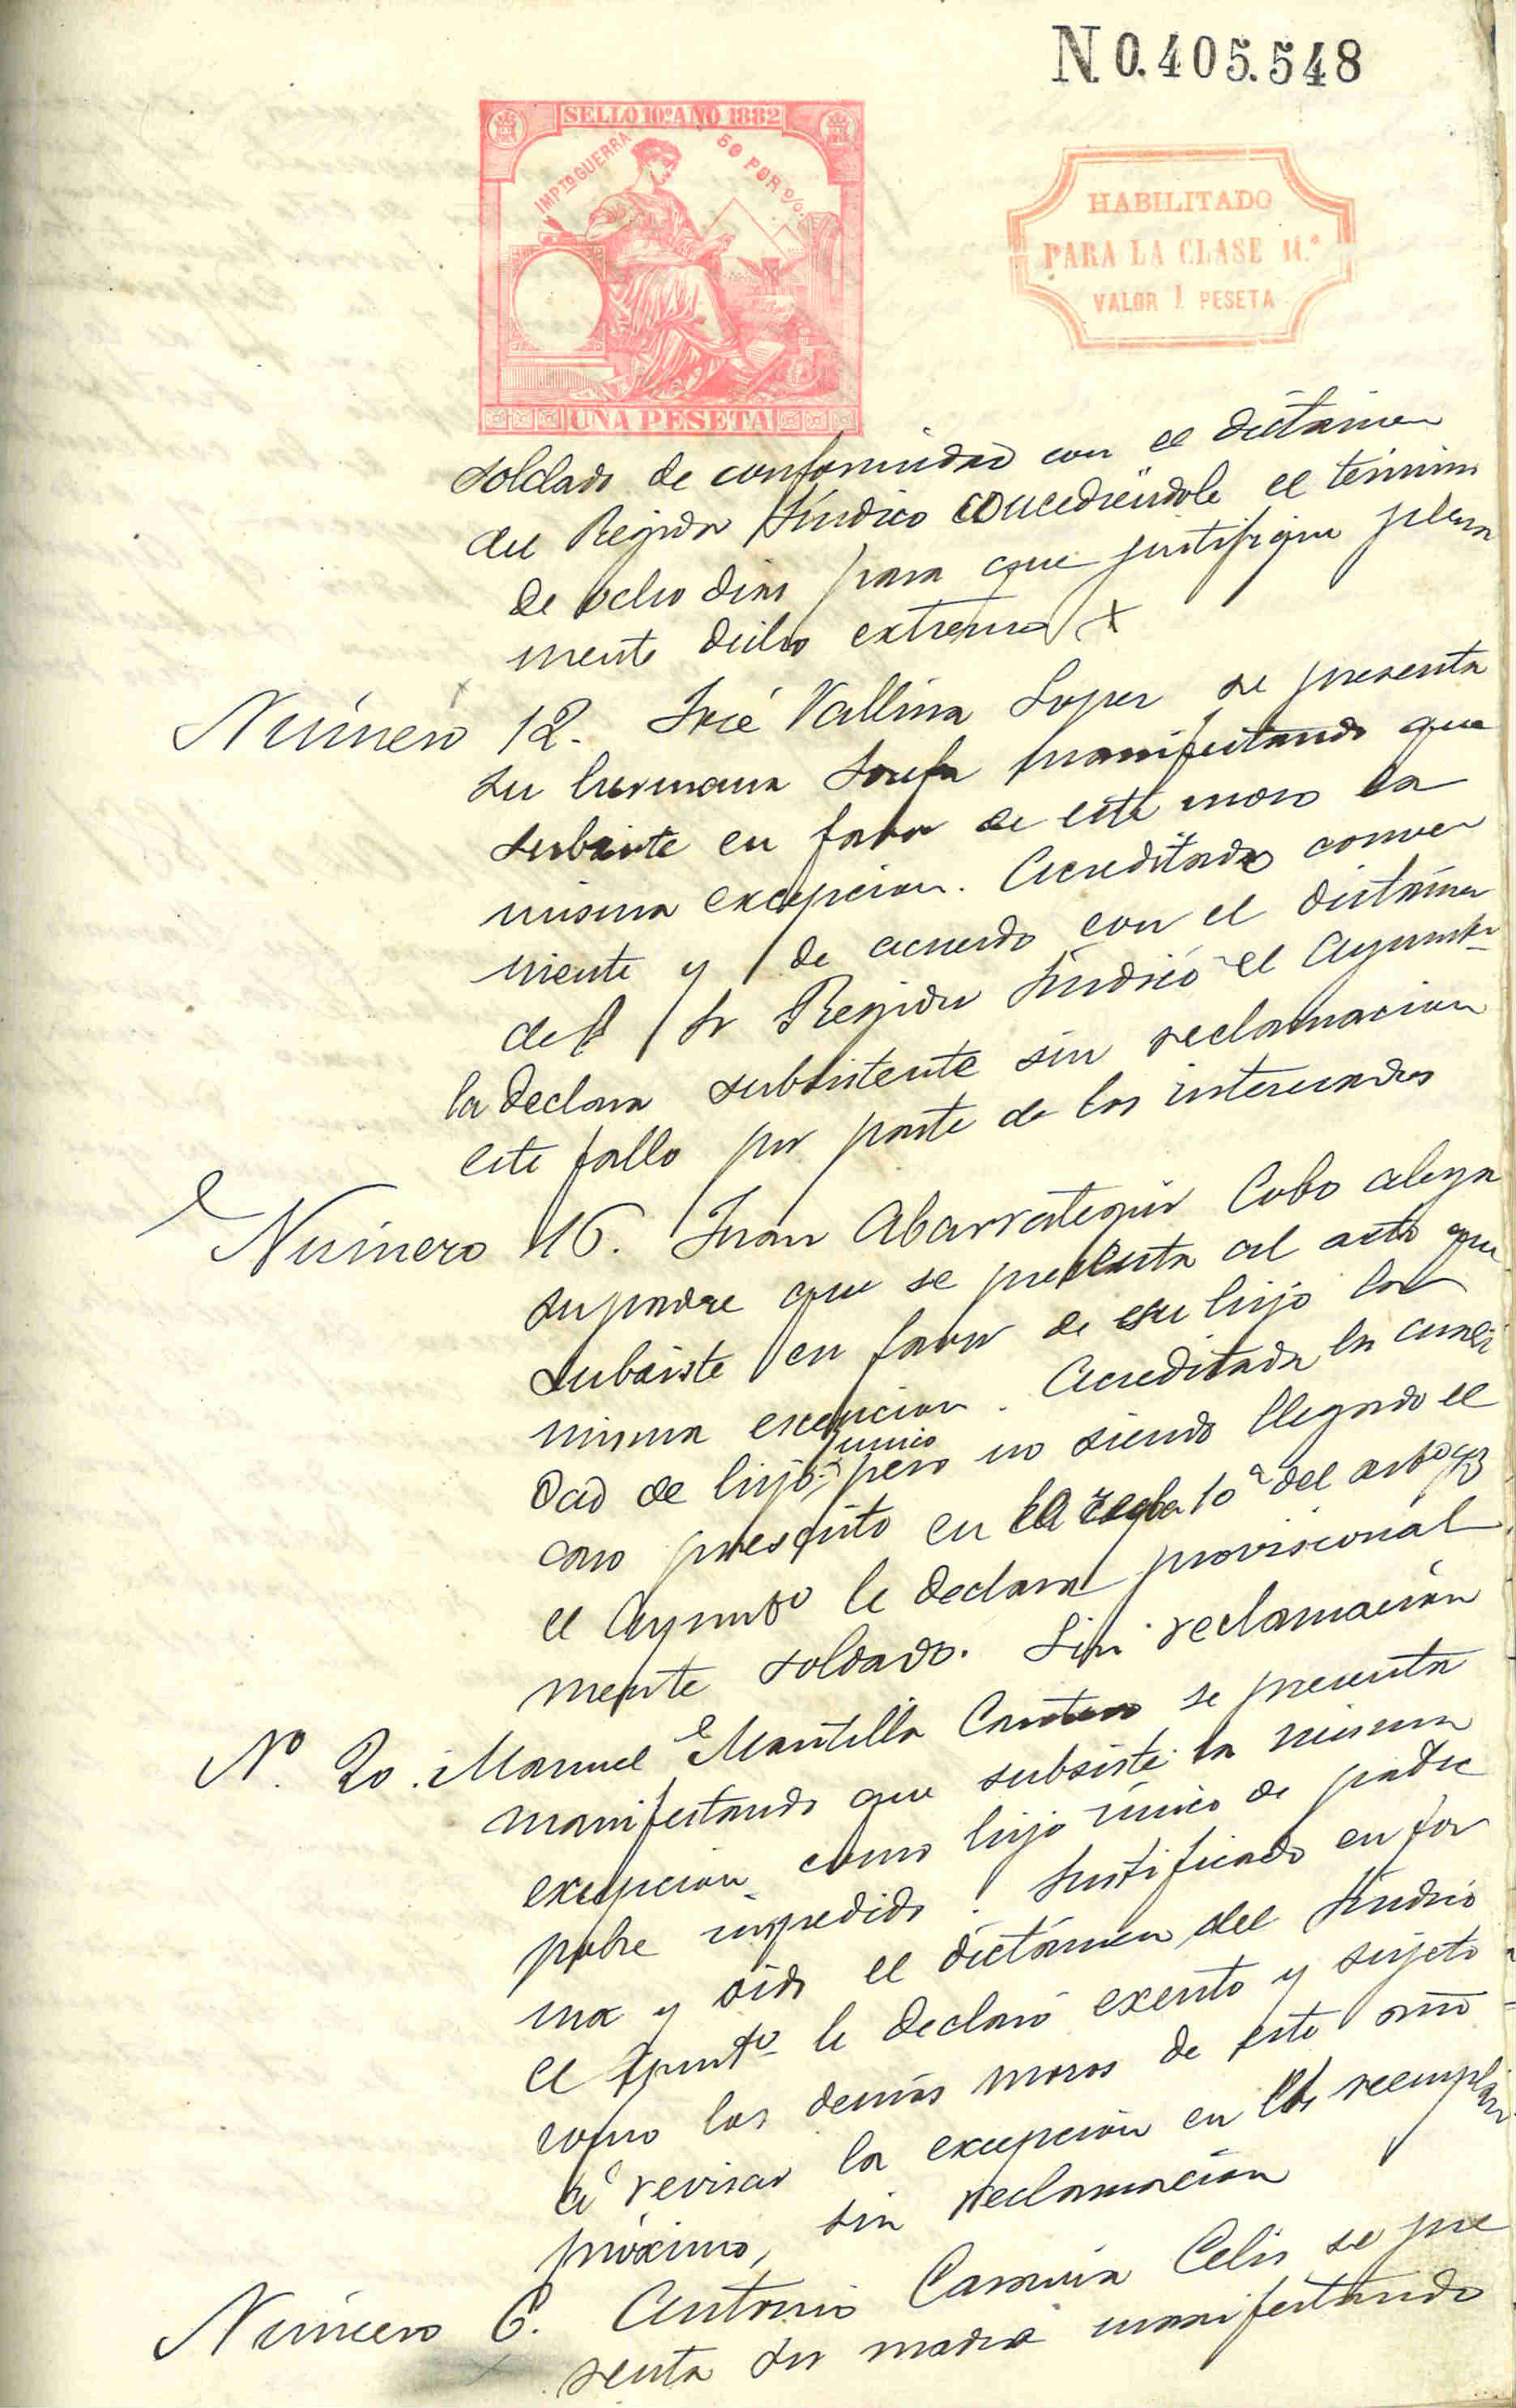 N 0.405.548
SELLO 10º AÑO 1882
IMPTO GUERRA 50 POR %.
UNA PESETA
HABILITADO
PARA LA CLASE 11.ª
VALOR 1 PESETA
soldado de conformidad con el dictámen
del Regidor Síndico concediéndole el término
de ocho dias para que justifique plena
mente dicho extremo
Número 12. José Vallina Lopez se presenta
su hermana Josefa manifestando que
subsiste en favor de este mozo la
misma excepcion. Acreditado conve
niente y de acuerdo con el dictámen
del Sr Regidor Síndico el Ayunto
la declara subsistente sin reclamacion
este fallo por parte de los interesados
Número 16. Juan Abarrategui Cobo alega
su padre que se presenta al acto que
subsiste en favor de su hijo la
misma excepcion. Acreditada la cuali
dad de hijo único pero no siendo llegado el
caso prescrito en la regla 10ª del arto 93
el Ayunto le declara provisional
mente soldado. Sin reclamación
Nº. 20. Manuel Mantilla se presenta
manifestando que subsiste la misma
excepcion como hijo único de padre
pobre impedido. Justificado en for
ma y oido el dictámen del Síndico
el Aynto le declaró exento y sujeto
como los demás mozos de este año
á revisar la excepción en los reemplazos
próximos, sin reclamación
Número 6. Antonio Celis se pre
senta su madre manifestando